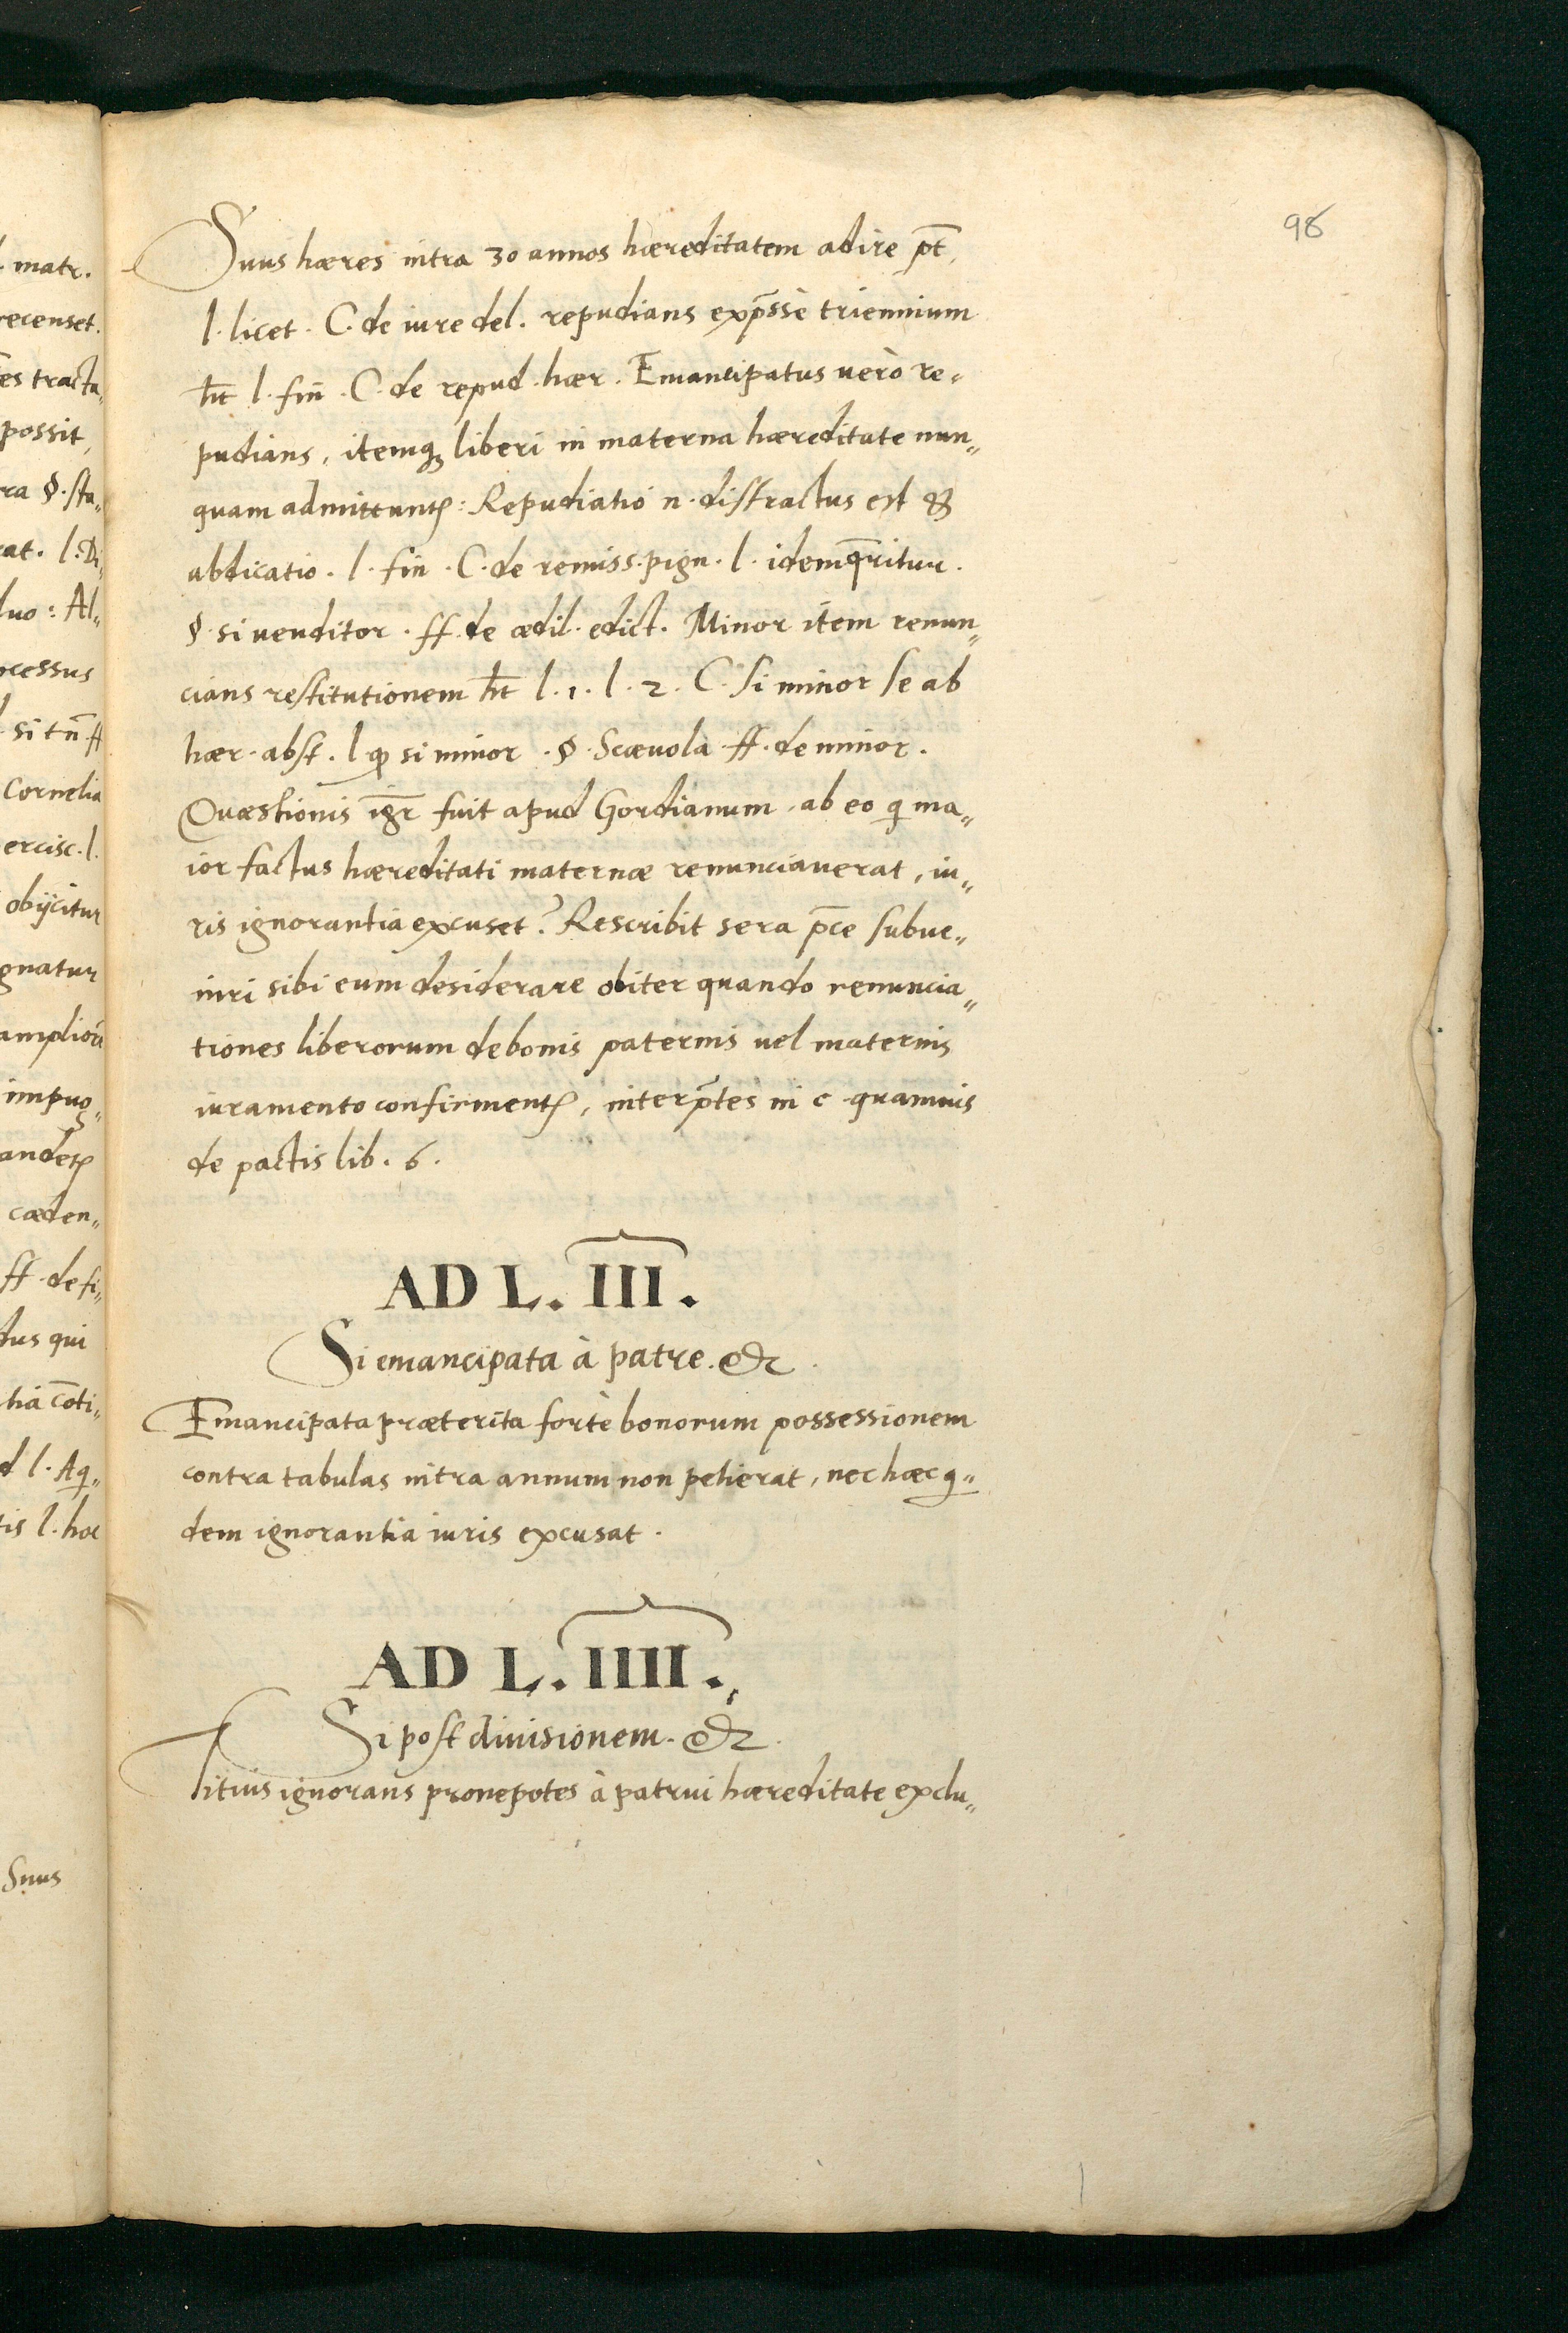 98
Suus hæres intra 30 annos hæreditatem adire pt̄,
l. licet. C. de iure del. repudians exp̄ssè triennium
ht̄ l. fin̄. C. de repud. hær. Emancipatus uerò re„
pudians, itemq̨ liberi in materna hæreditate nun„
quam admittuntꝛ: Repudiatio n. distractus est &
abdicatio. l. fin. C. de remiss. pign. l. idem q̄ritur.
§. si uenditor. ff. de ædil. edict. Minor item renun„
cians restitutionem ht̄ l. 1. l. 2. C. si minor se ab
hær. abst. l. ꝙ si minor. §. Scæuola ff. de minor.
Quæstionis igr̄ fuit apud Gordianum, ab eo q̨ ma„
ior factus hæreditati maternæ renunciauerat, iu„
ris ignorantia excuset? Rescribit sera p̄ce subue„
niri sibi eum desiderare obiter quando renuncia„
tiones liberorum de bonis paternis uel maternis
iuramento confirmentꝛ, interp̄tes in c. quamuis
de pactis lib. 6.
AD L. III.
Si emancipata à patre. &c.
Emancipata præterita fortè bonorum possessionem
contra tabulas intra annum non petierat, nec hæc q̨„
dem ignorantia iuris excusat.
AD L. IIII.
Si post diuisionem. &c.
Titius ignorans pronepotes à patrui hæreditate exclu„
matr.
recenset.
es tracta„
possit,
ra §. sta„
at. l. Di„
duo: Al„
ocessus
si tn̄ ff
Cornelia
ercisc. l.
obijcitur
gnatur
impug„
andetꝛ
cæden„
ff. de fi„
dus qui
tia c̄oti„
d l. Aq̨„
tis l. hoc
Suus